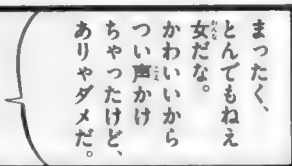 まったく、
とんでもねえ
女だな。
かわいいから
つい声かけ
ちゃったけど、
ありゃダメだ。